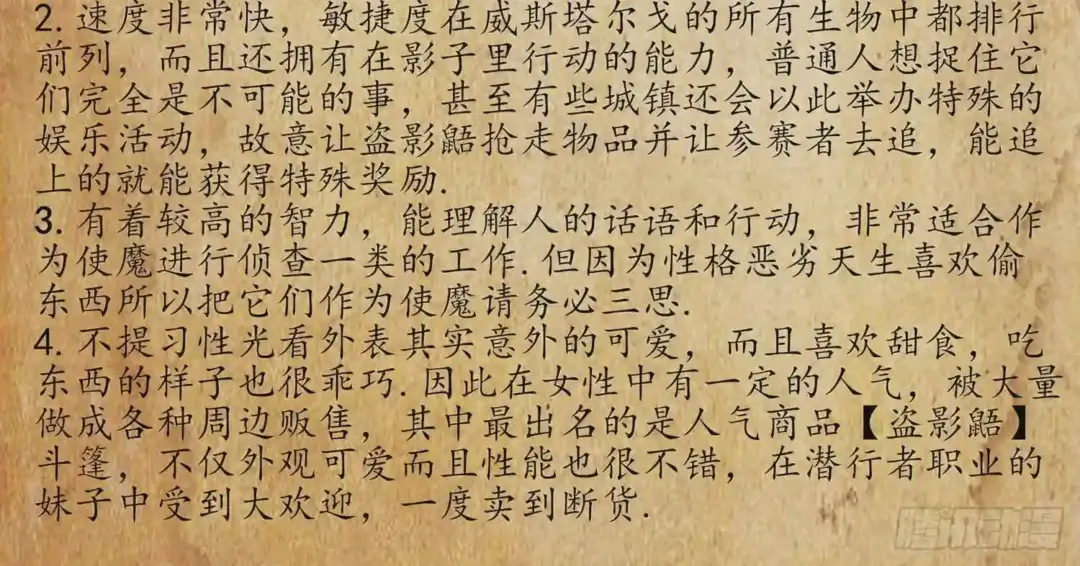 2. 速度非常快，敏捷度在威斯塔尔戈的所有生物中都排行
前列，而且还拥有在影子里行动的能力，普通人想捉住它
们完全是不可能的事，甚至有些城镇还会以此举办特殊的
娱乐活动，故意让盗影鼯抢走物品并让参赛者去追，能追
上的就能获得特殊奖励.
3. 有着较高的智力，能理解人的话语和行动，非常适合作
为使魔进行侦查一类的工作.但因为性格恶劣天生喜欢偷
东西所以把它们作为使魔请务必三思.
4. 不提习性光看外表其实意外的可爱，而且喜欢甜食，吃
东西的样子也很乖巧.因此在女性中有一定的人气，被大量
做成各种周边贩售，其中最出名的是人气商品【盗影鼯】
斗篷，不仅外观可爱而且性能也很不错，在潜行者职业的
妹子中受到大欢迎，一度卖到断货.
腾讯动漫